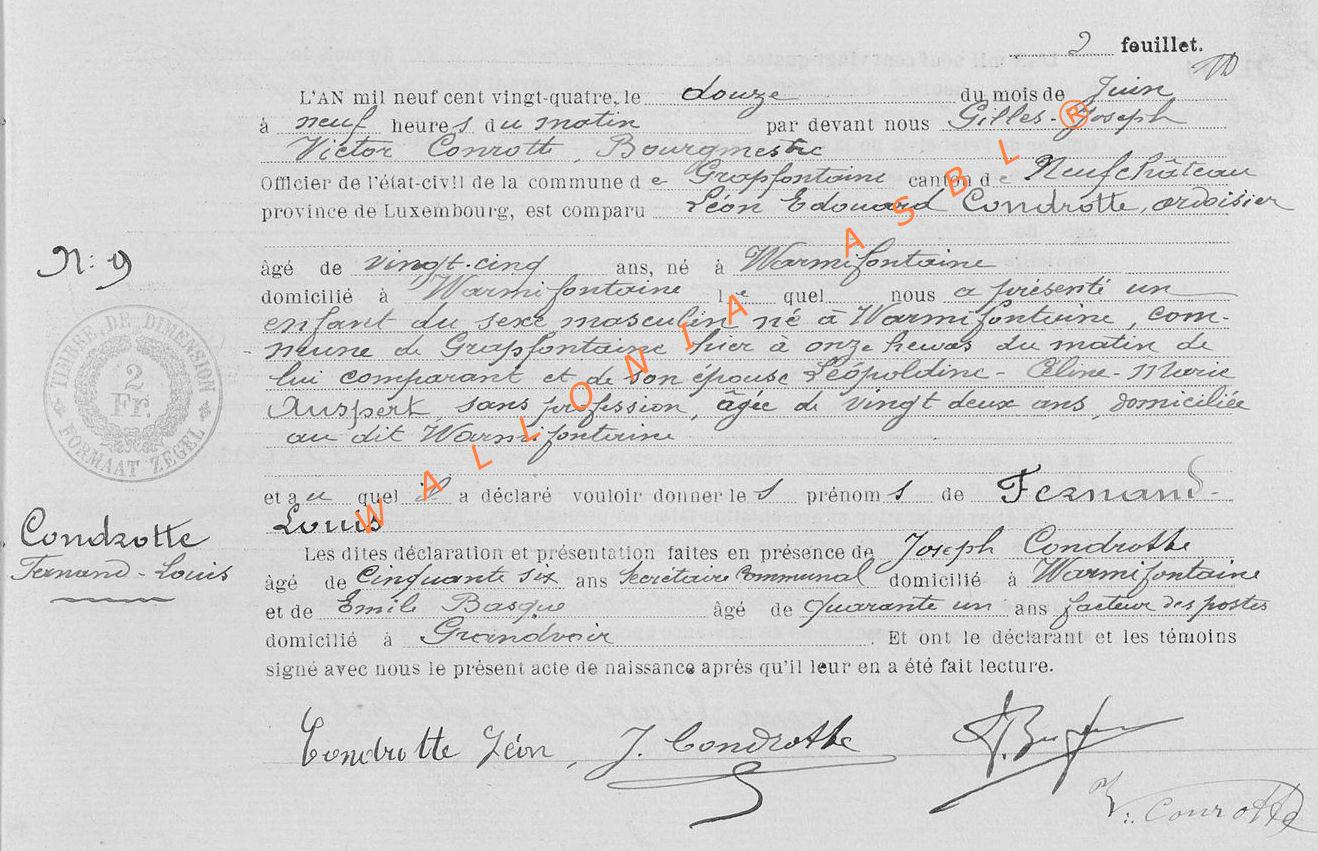 2 feuillet.
L'AN mil neuf cent vingt-quatre, le douze du mois de Juin
à neuf heures du matin par devant nous Gilles-Joseph
Victor Conrotte, Bourgmestre
Officier de l'état-civil de la commune de Grapfontaine canton de Neufchâteau
province de Luxembourg, est comparu Léon Edouard Condrotte, ardoisier
N: 9
âgé de vingt-cinq ans, né à Warmifontaine
domicilié à Warmifontaine lequel nous a présenté un
enfant du sexe masculin né à Warmifontaine, com-
mune de Grapfontaine hier à onze heures du matin de
lui comparant et de son épouse Léopoldine-Céline-Marie
Auspert, sans profession, âgée de vingt deux ans, domiciliée
au dit Warmifontaine
TIMBRE DE DIMENSION
2
Fr.
FORMAAT ZEGEL
et auquel il a déclaré vouloir donner les prénoms de Fernand-
Louis
Condrotte
Fernand-Louis
Les dites déclaration et présentation faites en présence de Joseph Condrotte
âgé de Cinquante six ans Secrétaire Communal domicilié à Warmifontaine
et de Emile Basque âgé de quarante un ans facteur des postes
domicilié à Grandvoir. Et ont le déclarant et les témoins
signé avec nous le présent acte de naissance après qu'il leur en a été fait lecture.
Condrotte Léon, J. Condrotte
V. Conrotte
WALLONIA ASBL ®